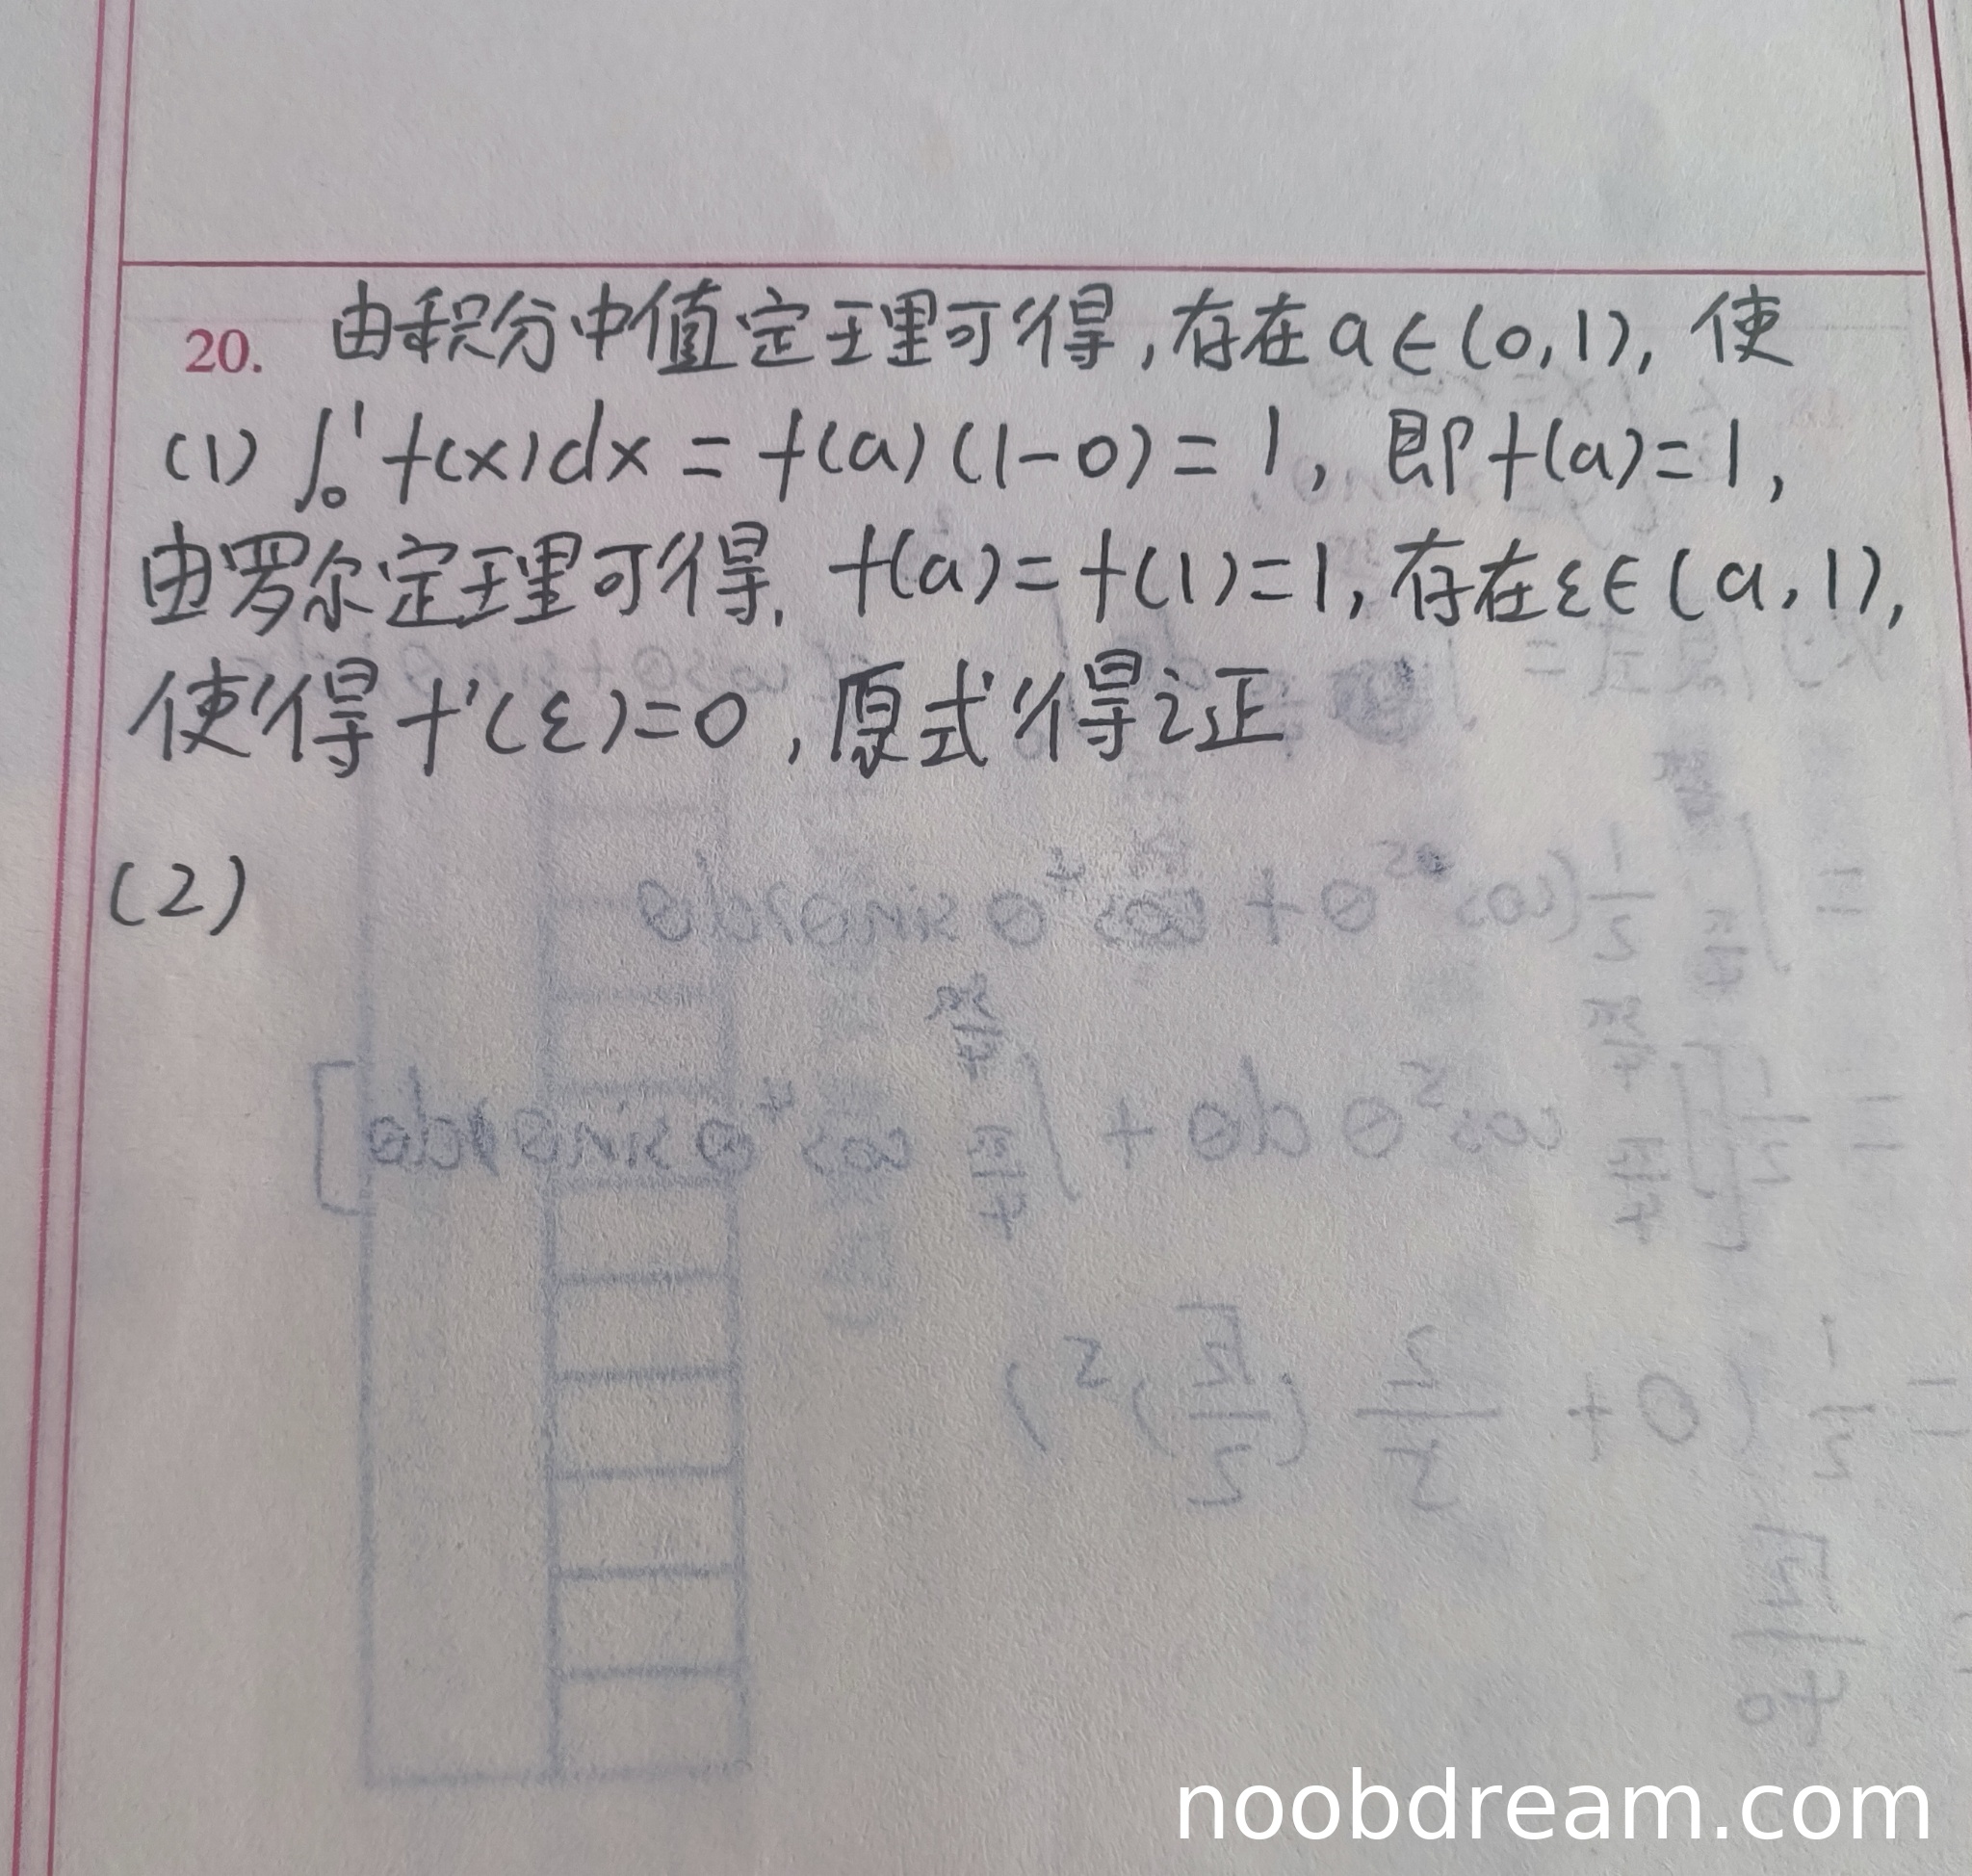 20. 由积分中值定理可得,存在a∈(0,1),使
(1) ∫₀¹ f(x)dx = f(a)(1-0)=1, 即f(a)=1,
由罗尔定理可得, f(a)=f(1)=1,存在ε∈(a,1),
使得f'(ε)=0,原式得证
(2)
noobdream.com